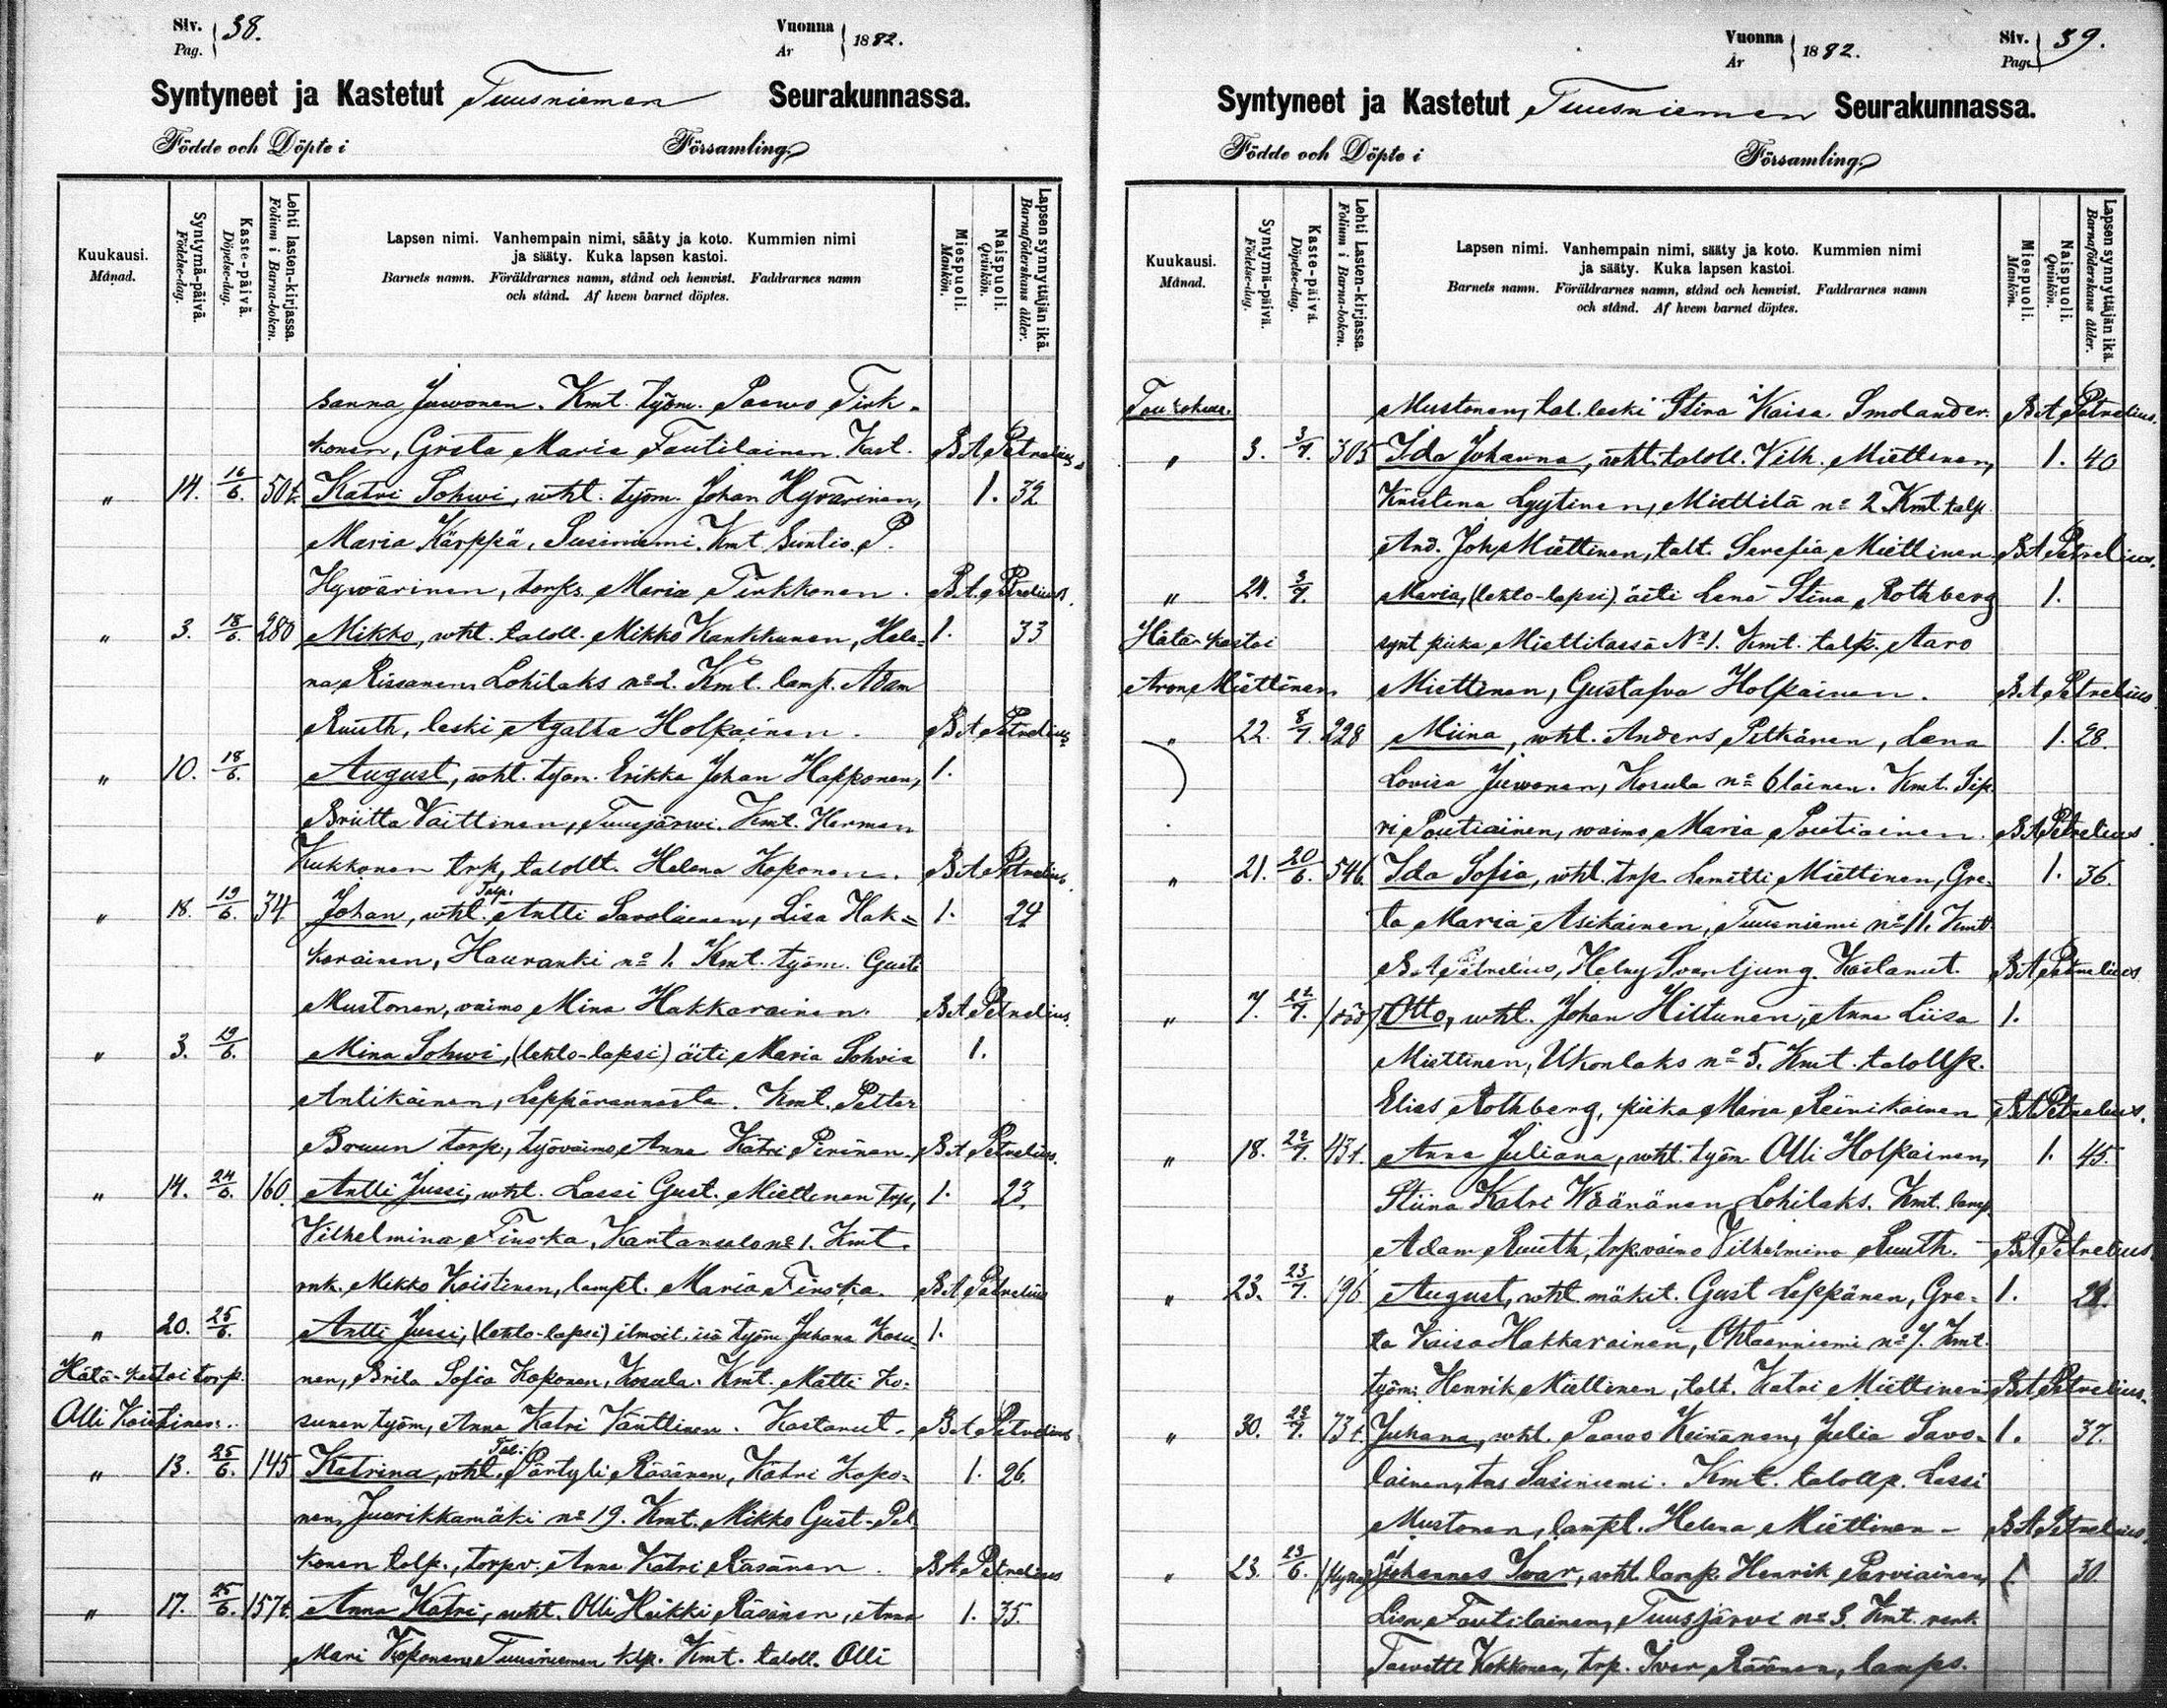 Siv. Pag. 38.
Vuonna År 1882.
Syntyneet ja Kastetut Tuusniemen Seurakunnassa.
Födde och Döpte i Församling.
Kuukausi. Månad.
Syntymä-päivä. Födelse-dag.
Kaste-päivä. Döpelse-dag.
Lehti lasten-kirjassa. Folium i Barna-boken.
Lapsen nimi. Vanhempain nimi, sääty ja koto. Kummien nimi
ja sääty. Kuka lapsen kastoi.
Barnets namn. Föräldrarnes namn, stånd och hemvist. Faddrarnes namn
och stånd. Af hvem barnet döptes.
Miespuoli. Mankön.
Naispuoli. Qvinkön.
Lapsen synnyttäjän ikä. Barnaföderskans ålder.
sanna Juvonen. Kmt. työm. Paavo Tirk-
konen, Greta Maria Tautilainen. Kast. B. A Petrelius.
" 14. 16/6. 50t. Katri Sohwi, wht. työm. Johan Hyvärinen, 1. 32
Maria Kärppä, Susiniemi. Kmt Suntio. P.
Hywärinen, torps. Maria Tirkkonen. B. A. Petrelius.
" 3. 18/6. 280 Mikko, wht. taloll. Mikko Kankkunen, Hele- 1. 33
na Rissanen Lohilaks no 2. Kmt. lamp. Adam
Ruuth, leski Agatha Holpainen. B. A Petrelius.
" 10. 18/6. August, wht. työm. Erikka Johan Happonen, 1.
Briitta Vaittinen, Tuusjärwi. Kmt. Herman
Kukkonen trp, talollt. Helena Koponen. B. A Petrelius.
" 18. 19/6. 34. Johan, wht. Talp. Antti Savolainen, Lisa Hak= 1. 24
karainen, Hauranki no 1. Kmt. työm. Gust.
Mustonen, vaimo Mina Hakkarainen. B A Petrelius.
" 3. 19/6. Mina Sohwi, (lehto-lapsi) äiti Maria Sohvia 1.
Antikainen, Leppärannasta. Kmt. Petter
Bruun torp., työvaimo Anna Katri Pirinen. B. A Petrelius.
" 14. 24/6. 160. Antti Jussi, wht. Lassi Gust. Miettinen trp, 1. 23.
Vilhelmina Finska, Kartansalo no 1. Kmt.
rnk. Mikko Koistinen, lampt. Maria Finska. B. A Petrelius
" 20. 25/6. Antti Jussi, (lehto-lapsi) ilmoit. isä työm Juhana Kosu- 1.
Hätä-kastoi torp. nen, Brita Sofia Koponen, Kosula. Kmt. Matti Ko-
Olli Koistinen. sunen työm, Anna Katri Vänttinen. Kastanut. B. A Petrelius
" 13. 25/6. 145 Katrina, wht. Tal: Pärtyli Räsänen, Katri Kopo- 1. 26.
nen, Juurikkamäki no 19. Kmt. Mikko Gust. Pel-
konen talp., torpv. Anna Katri Räsänen. B A Petrelius
" 17. 25/6. 157t. Anna Katri, wht. Olli Heikki Räsänen, Anna 1. 35.
Mari Koponen, Tuusniemen klp. Kmt. taloll. Olli
Siv. Pag. 39.
Vuonna År 1882.
Syntyneet ja Kastetut Tuusniemen Seurakunnassa.
Födde och Döpte i Församling.
Kuukausi. Månad.
Syntymä-päivä. Födelse-dag.
Kaste-päivä. Döpelse-dag.
Lehti Lasten-kirjassa. Folium i Barna-boken.
Lapsen nimi. Vanhempain nimi, sääty ja koto. Kummien nimi
ja sääty. Kuka lapsen kastoi.
Barnets namn. Föräldrarnes namn, stånd och hemvist. Faddrarnes namn
och stånd. Af hvem barnet döptes.
Miespuoli. Mankön.
Naispuoli. Qvinkön.
Lapsen synnyttäjän ikä. Barnaföderskans ålder.
Toukokuu. Mustonen, tal. leski Stina Kaisa Smolander. B. A Petrelius.
" 3. 3/7. 305 Ida Johanna, wht. taloll. Vilh. Miettinen, 1. 40
Kristina Lyytinen, Miettilä no 2. Kmt. talp.
And. Joh Miettinen, talt. Serefia Miettinen. B A Petrelius.
" 24. 3/7. Maria, (lehto-lapsi) äiti Lena Stina Rothberg 1.
Hätä-kastoi synt piika Miettilässä No 1. Kmt. talp. Aaro
Aron Miettinen Miettinen, Gustafva Holpainen. B. A Petrelius.
" 22. 8/7. 228 Miina, wht. Anders Pitkänen, Lena 1. 28.
Lovisa Juwonen, Kosula no 6 läinen. Kmt. Sip-
ri Poutiainen, waimo Maria Poutiainen. B A Petrelius.
" 21. 20/6. 546. Ida Sofia, wht. trp. Lemetti Miettinen, Gre- 1. 36.
ta Maria Asikainen, Tuusniemi no 11. Kmt.
B. A Petrelius, Helny Svanljung. Kastanut. B A Petrelius
" 7. 22/7. Otto, wht. Johan Hiltunen, Anna Liisa 1.
Miettinen, Ukonlaks no 5. Kmt. talollp.
Elias Rothberg, piika Maria Reinikainen B A Petrelius.
" 18. 22/7. 43t. Anna Juliana, wht. työm Olli Holpainen, 1. 45.
Stiina Katri Wäänänen Lohilaks. Kmt. lamp.
Adam Ruuth, trp. vaimo Vilhelmina Ruuth. B A Petrelius.
" 23. 23/7. 196 August, wht. mäkit. Gust Leppänen, Gre- 1. 24.
ta Kaisa Hakkarainen, Ohtaanniemi no 7. Kmt.
työm. Henrik Miettinen, talt. Katri Miettinen B A Petrelius.
" 30. 23/7. 73t. Juhana, wht. Paavo Keinänen, Julia Savo- 1. 37.
lainen, Susiniemi. Kmt. talollp. Lassi
Mustonen, lampt. Helena Miettinen - B A Petrelius.
" 23. 23/6. Johannes Ivar, wht. lamp. Henrik Parviainen, 1. 30.
Lisa Tautilainen, Tuusjärvi no 3. Kmt. renk.
Taavetti Kekkonen, trp. Iver Räsänen, lamps.